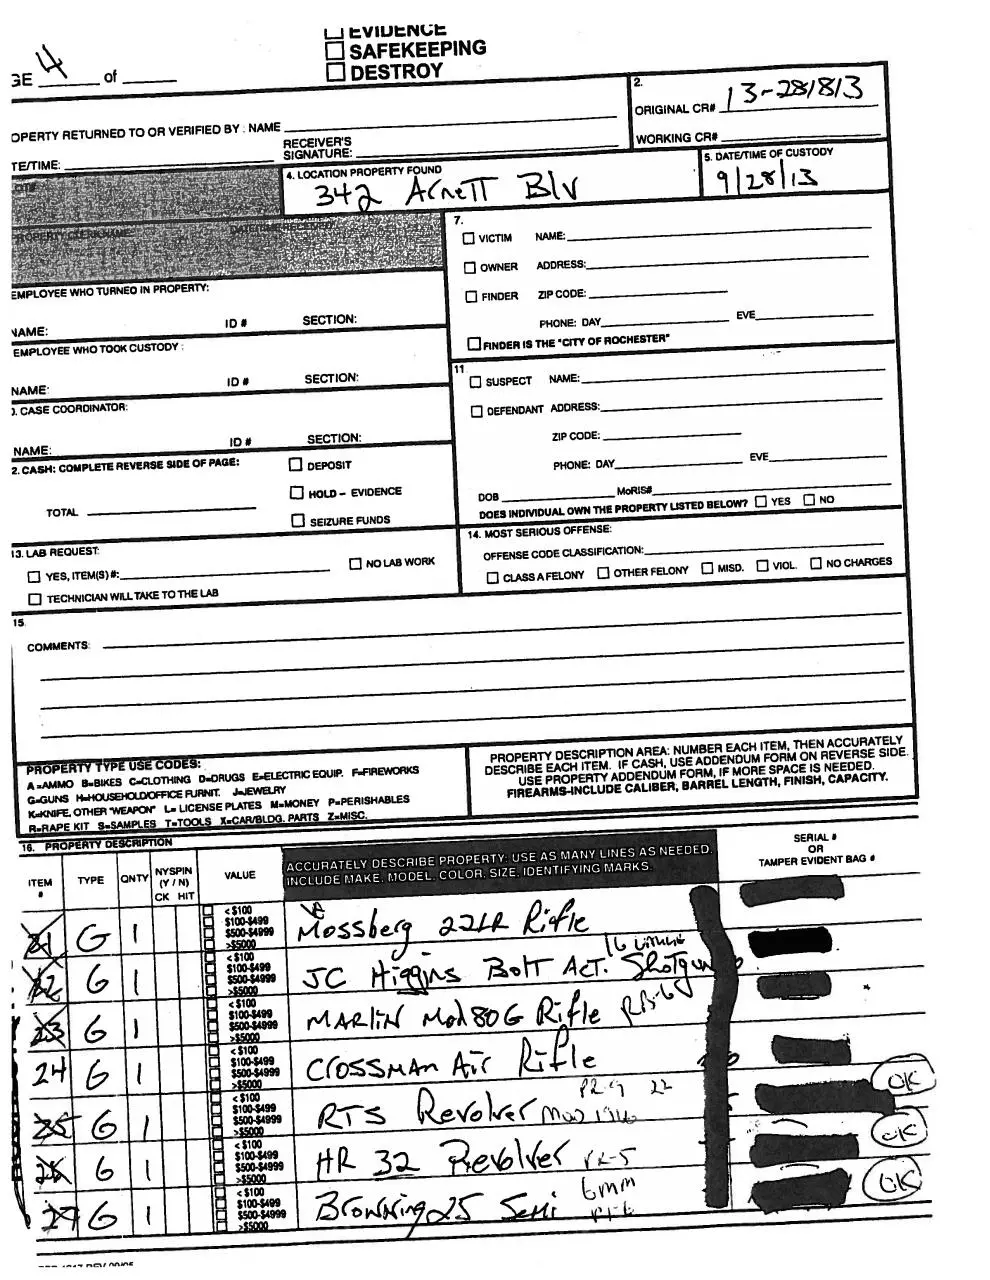 EVIDENCE
SAFEKEEPING
DESTROY
GE 4 of
2.
ORIGINAL CR# 13-281813
WORKING CR#
OPERTY RETURNED TO OR VERIFIED BY : NAME
RECEIVER'S
SIGNATURE:
TE/TIME:
4. LOCATION PROPERTY FOUND
342 Arnett Blv
5. DATE/TIME OF CUSTODY
9/28/13
7.
VICTIM NAME:
OWNER ADDRESS:
FINDER ZIP CODE:
PHONE: DAY EVE
FINDER IS THE "CITY OF ROCHESTER"
EMPLOYEE WHO TURNED IN PROPERTY:
NAME: ID # SECTION:
EMPLOYEE WHO TOOK CUSTODY :
NAME: ID # SECTION:
). CASE COORDINATOR:
NAME: ID # SECTION:
11
SUSPECT NAME:
DEFENDANT ADDRESS:
ZIP CODE:
PHONE: DAY EVE
DOB MoRIS#
DOES INDIVIDUAL OWN THE PROPERTY LISTED BELOW? YES NO
2. CASH: COMPLETE REVERSE SIDE OF PAGE:
DEPOSIT
HOLD – EVIDENCE
TOTAL
SEIZURE FUNDS
13. LAB REQUEST:
YES, ITEM(S) #: NO LAB WORK
TECHNICIAN WILL TAKE TO THE LAB
14. MOST SERIOUS OFFENSE:
OFFENSE CODE CLASSIFICATION:
CLASS A FELONY OTHER FELONY MISD. VIOL. NO CHARGES
15.
COMMENTS:
PROPERTY TYPE USE CODES:
A=AMMO B=BIKES C=CLOTHING D=DRUGS E=ELECTRIC EQUIP. F=FIREWORKS
G=GUNS H=HOUSEHOLD/OFFICE FURNIT. J=JEWELRY
K=KNIFE, OTHER "WEAPON" L= LICENSE PLATES M=MONEY P=PERISHABLES
R=RAPE KIT S=SAMPLES T=TOOLS X=CAR/BLDG. PARTS Z=MISC.
PROPERTY DESCRIPTION AREA: NUMBER EACH ITEM, THEN ACCURATELY
DESCRIBE EACH ITEM. IF CASH, USE ADDENDUM FORM ON REVERSE SIDE.
USE PROPERTY ADDENDUM FORM, IF MORE SPACE IS NEEDED.
FIREARMS-INCLUDE CALIBER, BARREL LENGTH, FINISH, CAPACITY.
16. PROPERTY DESCRIPTION
ITEM # TYPE QNTY NYSPIN (Y / N) CK HIT VALUE
ACCURATELY DESCRIBE PROPERTY: USE AS MANY LINES AS NEEDED.
INCLUDE MAKE, MODEL, COLOR, SIZE, IDENTIFYING MARKS.
SERIAL #
OR
TAMPER EVIDENT BAG #
21 G 1 <$100 $100-$499 $500-$4999 >$5000 Mossberg 22LR Rifle
22 G 1 <$100 $100-$499 $500-$4999 >$5000 JC Higgins Bolt Act. Shotgun
23 G 1 <$100 $100-$499 $500-$4999 >$5000 MARLIN Mod 80G Rifle
24 G 1 <$100 $100-$499 $500-$4999 >$5000 Crossman Air Rifle
PR-9 22
25 G 1 <$100 $100-$499 $500-$4999 >$5000 RTS Revolver OK
26 G 1 <$100 $100-$499 $500-$4999 >$5000 HR 32 Revolver PR-5 OK
6mm
27 G 1 <$100 $100-$499 $500-$4999 >$5000 Browning 25 Semi OK